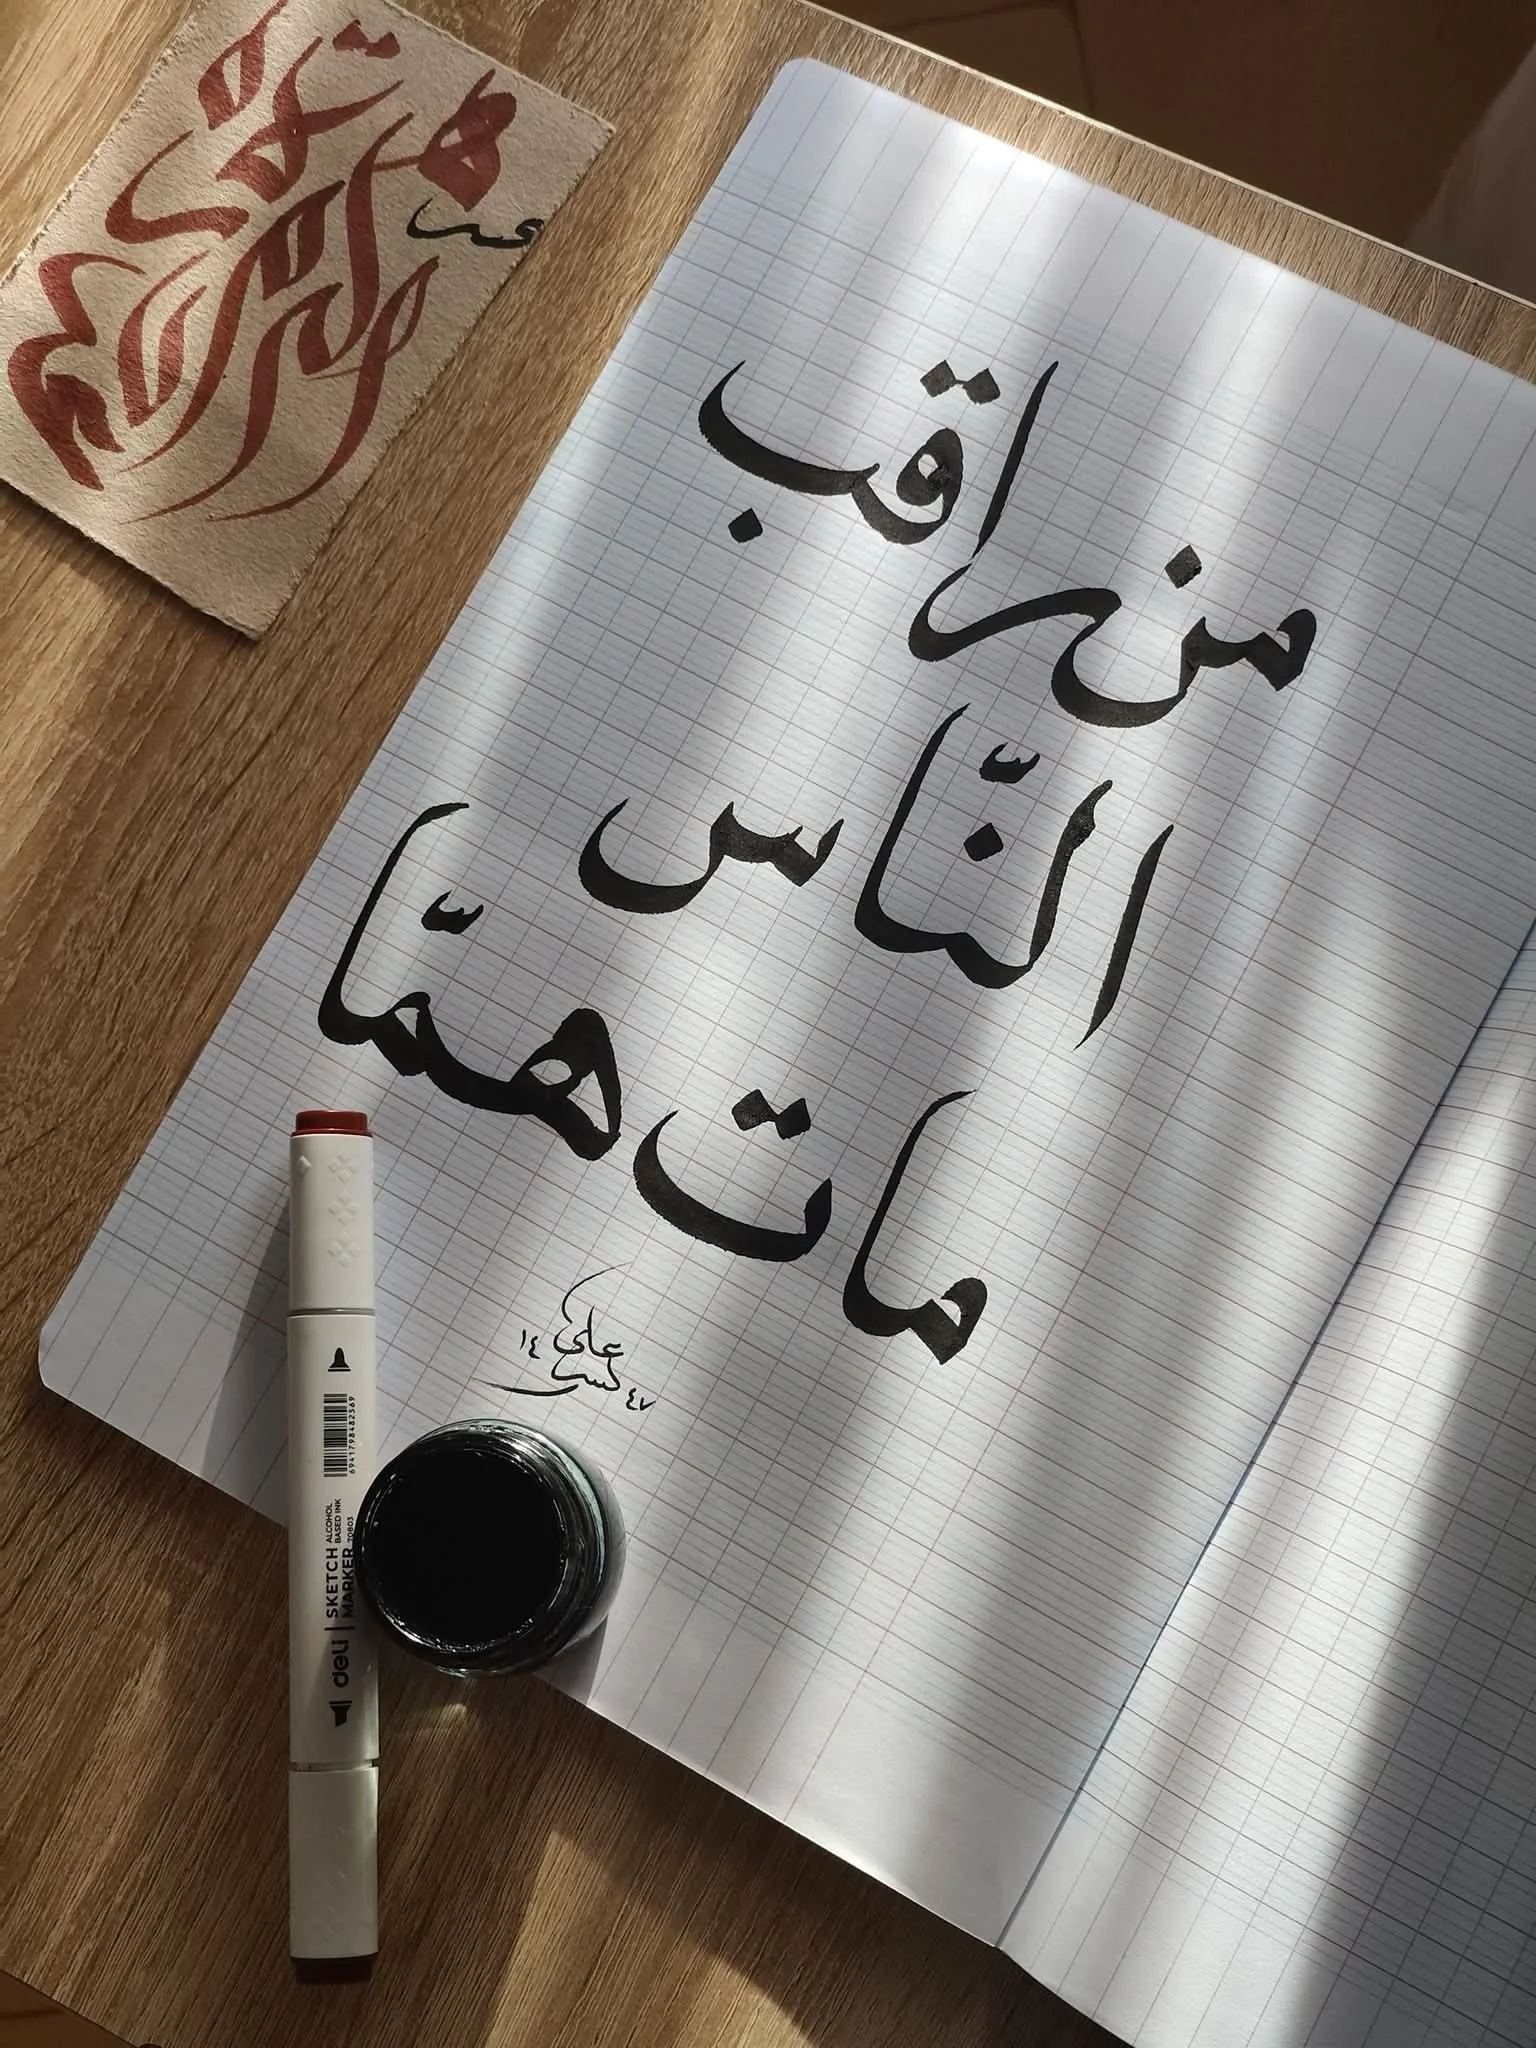 من راقب
النَّاس
مات همَّا
علي
١٤ ٤٧
deli SKETCH MARKER
ALCOHOL BASED INK
70803
6941798482569